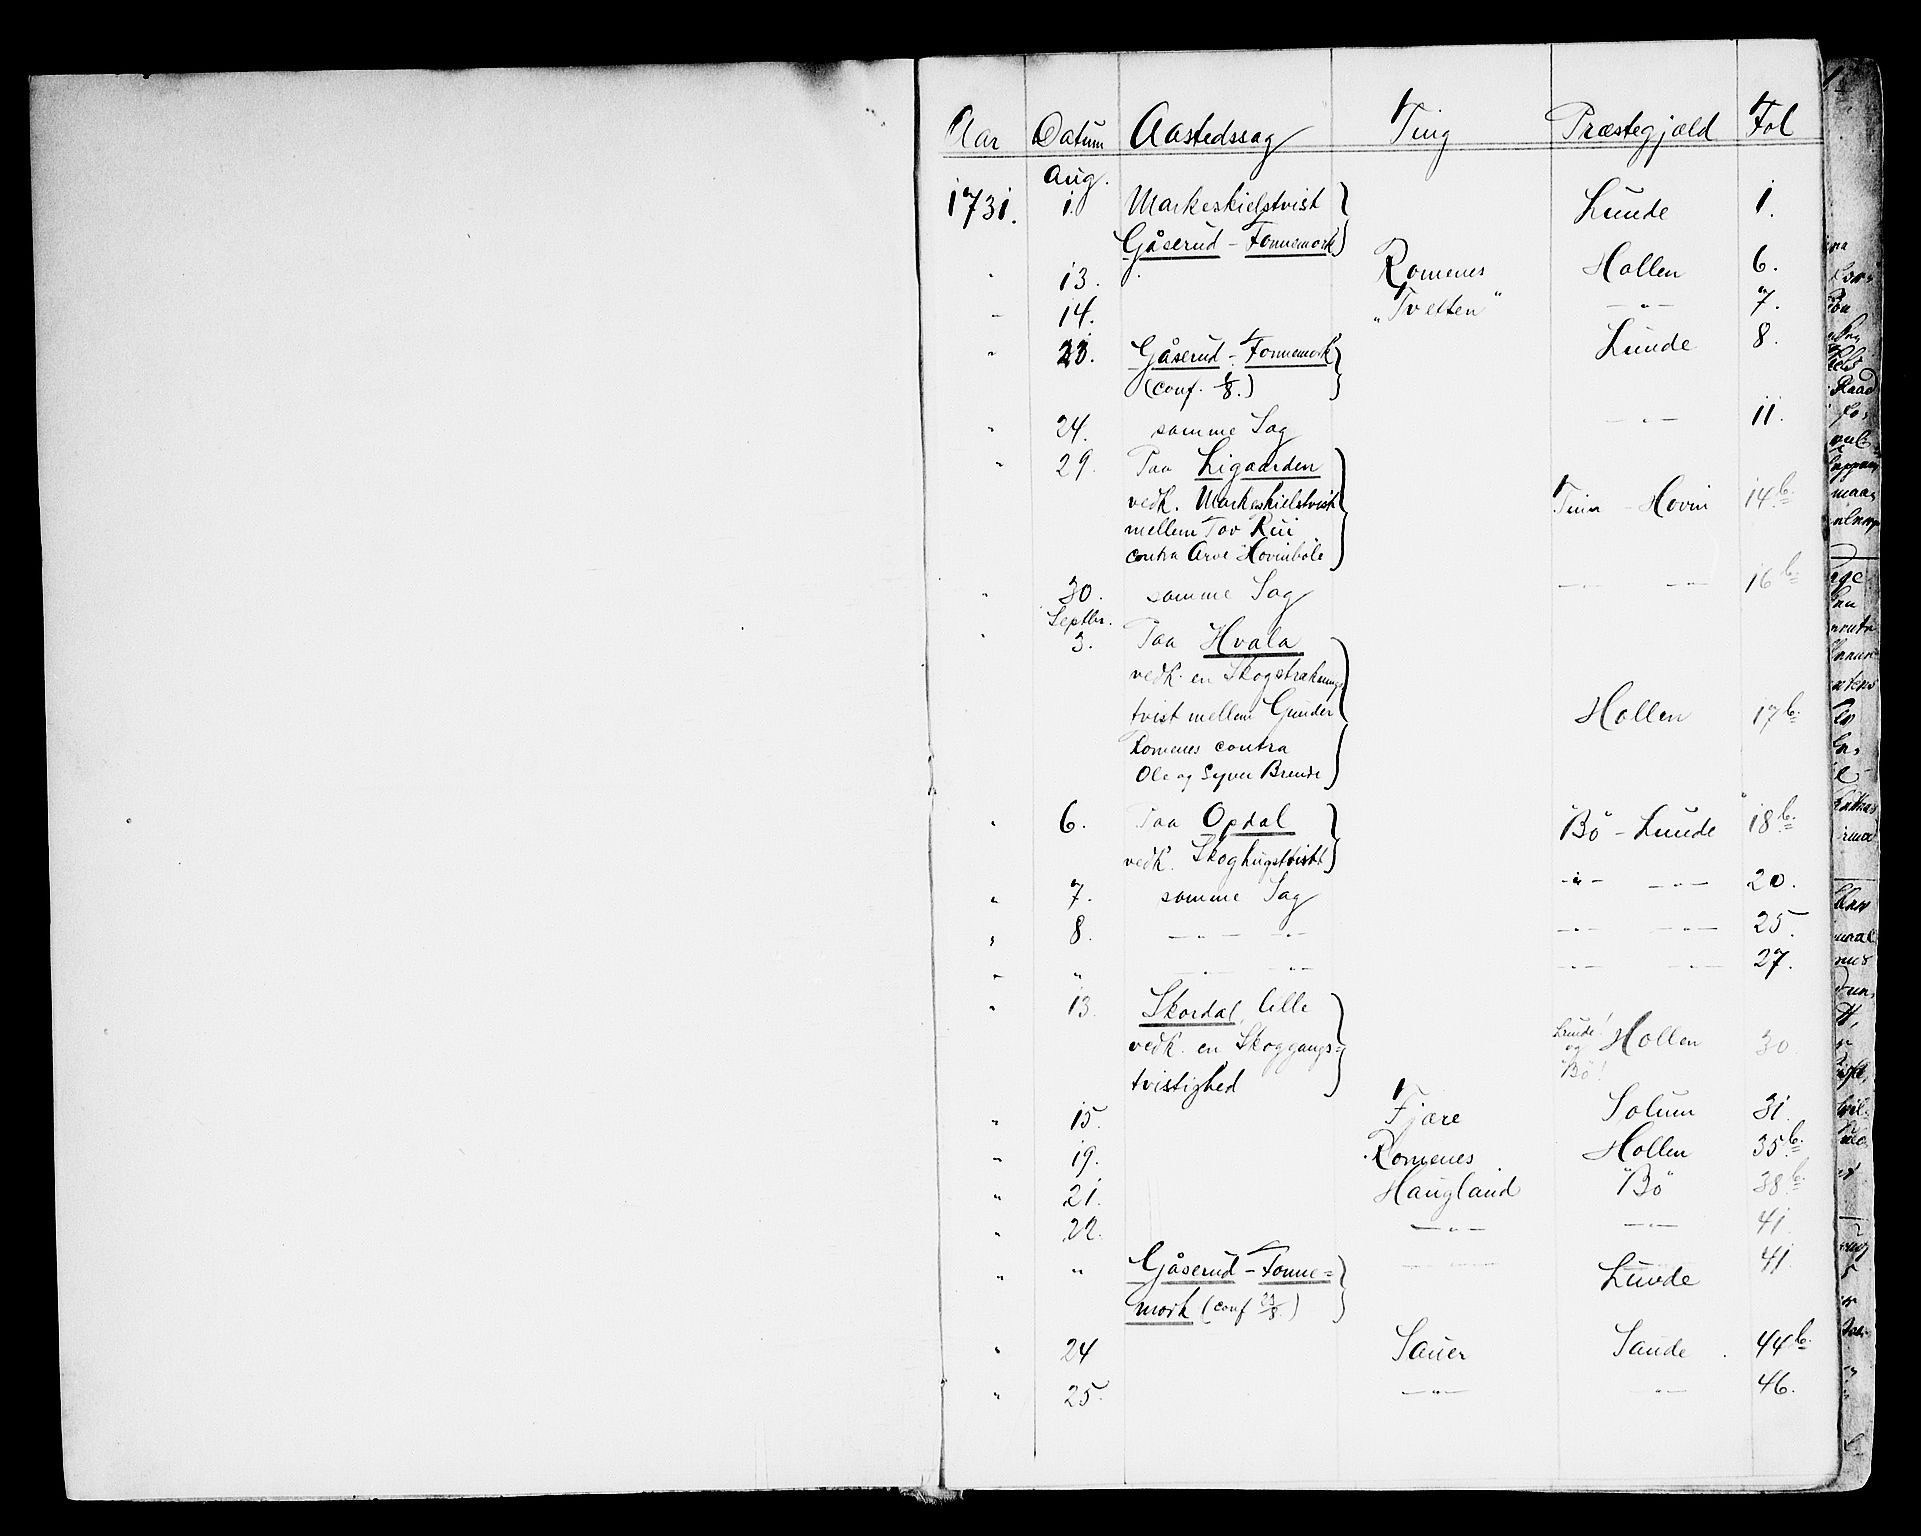 Aar Datum Aastedssag Ting Præstegjæld Fol
Aug.
1731. 1. Markeskielstvist Lunde 1.
Gåserud - Fonnemork
" 13. Romenes Hollen 6.
" 14. "Tveten" — " — 7.
" 23. Gåserud - Fonnemork Lunde 8.
(conf. 1/8.)
" 24. samme Sag — " — 11.
" 29. Paa Ligaarden
vedk. Markeskielstvist Tinn - Hovin 14 b.
mellem Tov Rui
contra Arve Hovinbøle
" 30. samme Sag — " — — " — 16 b.
Septbr.
" 3. Paa Hvala
vedk. en Skogstraknings
tvist mellem Gunder Hollen 17 b.
Romenes contra
Ole og Syver Brende
" 6. Paa Opdal Bö - Lunde 18 b.
vedk. Skoghugsttvist
" 7. samme Sag — " — — " — 20.
" 8. — " — — " — — " — — " — 25.
" " — " — — " — — " — — " — 27.
" 13. Skordal, lille
vedk. en Skoggangs= Lunde! og Bö! Hollen 30
tvistighed
" 15. Fjære Solum 31.
" 19. Romenes Hollen 35 b.
" 21. Haugland Bö 38 b.
" 22. — " — — " — 41
" " Gåserud - Fonne= — " — Lunde 41
mork (conf 23/8.)
" 24 Sauer Saude 44 b.
" 25. — " — — " — 46.